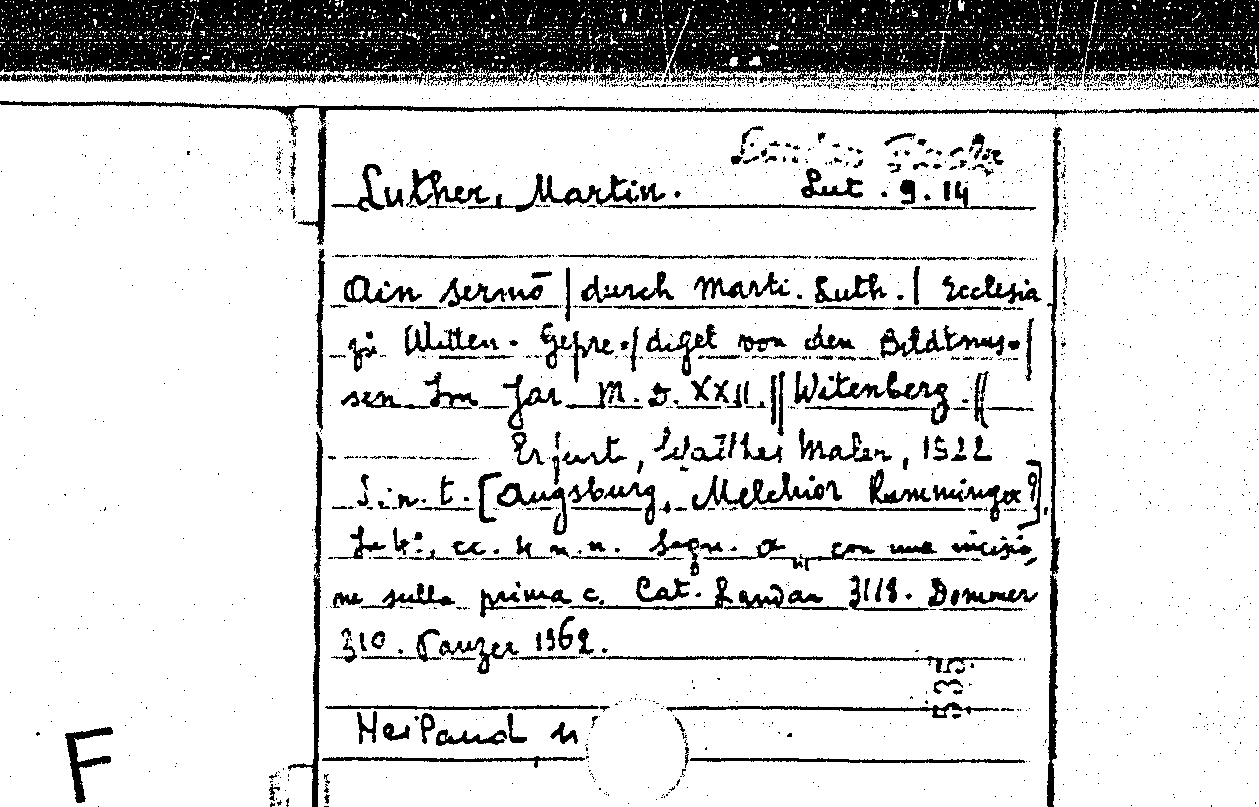 Luther, Martin.
Lut. 9. 14
Ain Sermō | durch Marti. Luth. | Ecclesia
zů Witten- Gepre= | diget von den Bildtnus= |
sen Im Jar M.D.XXII. || Witenberg. ||
Erfurt, Mathes Maler, 1522
S.n.t. [Augsburg, Melchior Ramminger?].
In 4°, cc. 4 n.n. Segn. a con una incisio
ne sulla prima c. Cat. London 3118. Dommer
310. Panzer 1362.
535
F